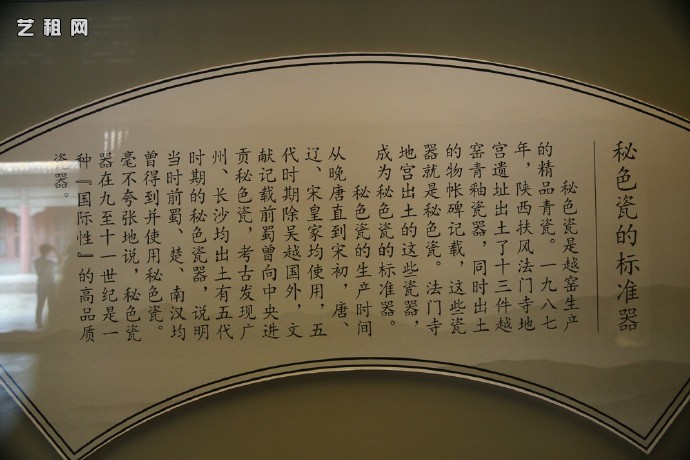 艺租网
秘色瓷的标准器
秘色瓷是越窑生产
的精品青瓷。一九八七
年，陕西扶风法门寺地
宫遗址出土了十三件越
窑青釉瓷器，同时出土
的物帐碑记载，这些瓷
器就是秘色瓷。法门寺
地宫出土的这些瓷器，
成为秘色瓷的标准器。
秘色瓷的生产时间
从晚唐直到宋初，唐、
辽、宋皇家均使用，五
代时期除吴越国外，文
献记载前蜀曾向中央进
贡秘色瓷，考古发现广
州、长沙均出土有五代
时期的秘色瓷器，说明
当时前蜀、楚、南汉均
曾得到并使用秘色瓷。
毫不夸张地说，秘色瓷
器在九至十一世纪是一
种『国际性』的高品质
瓷器。